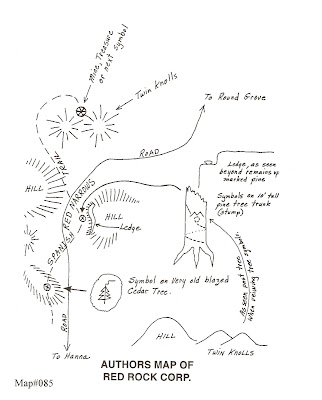 Mine, Treasure
or next symbol
Twin Knolls
To Round Grove
ROAD
Ledge, as seen
beyond remains of
marked pine
TRAIL
Symbols on 10' tall
pine tree trunk
(stump)
HILL
RED NARROWS
HILL
Ledge
SPANISH
As seen past tree
when viewing tree symbols
Symbol on Very old blazed
Cedar Tree.
ROAD
HILL
TWIN KNOLLS
To Hanna
AUTHORS MAP OF
RED ROCK CORP.
Map#085